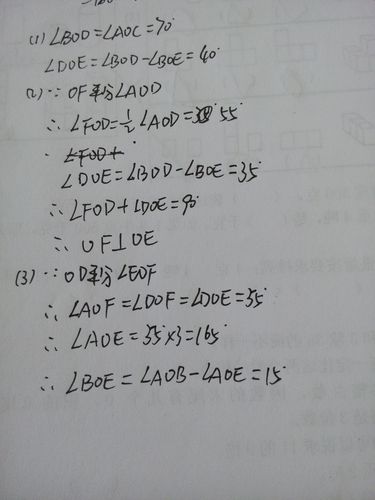 (1) ∠BOD=∠AOC=70°
∠DOE=∠BOD-∠BOE=40°
(2) ∵ OF平分∠AOD
∴ ∠FOD=½∠AOD=55°
∠FOD+
∠DOE=∠BOD-∠BOE=35°
∴ ∠FOD+∠DOE=90°
∴ OF⊥OE
(3) ∵ OD平分∠EOF
∴ ∠AOF=∠DOF=∠DOE=55°
∴ ∠AOE=55×3=165°
∴ ∠BOE=∠AOB-∠AOE=15°